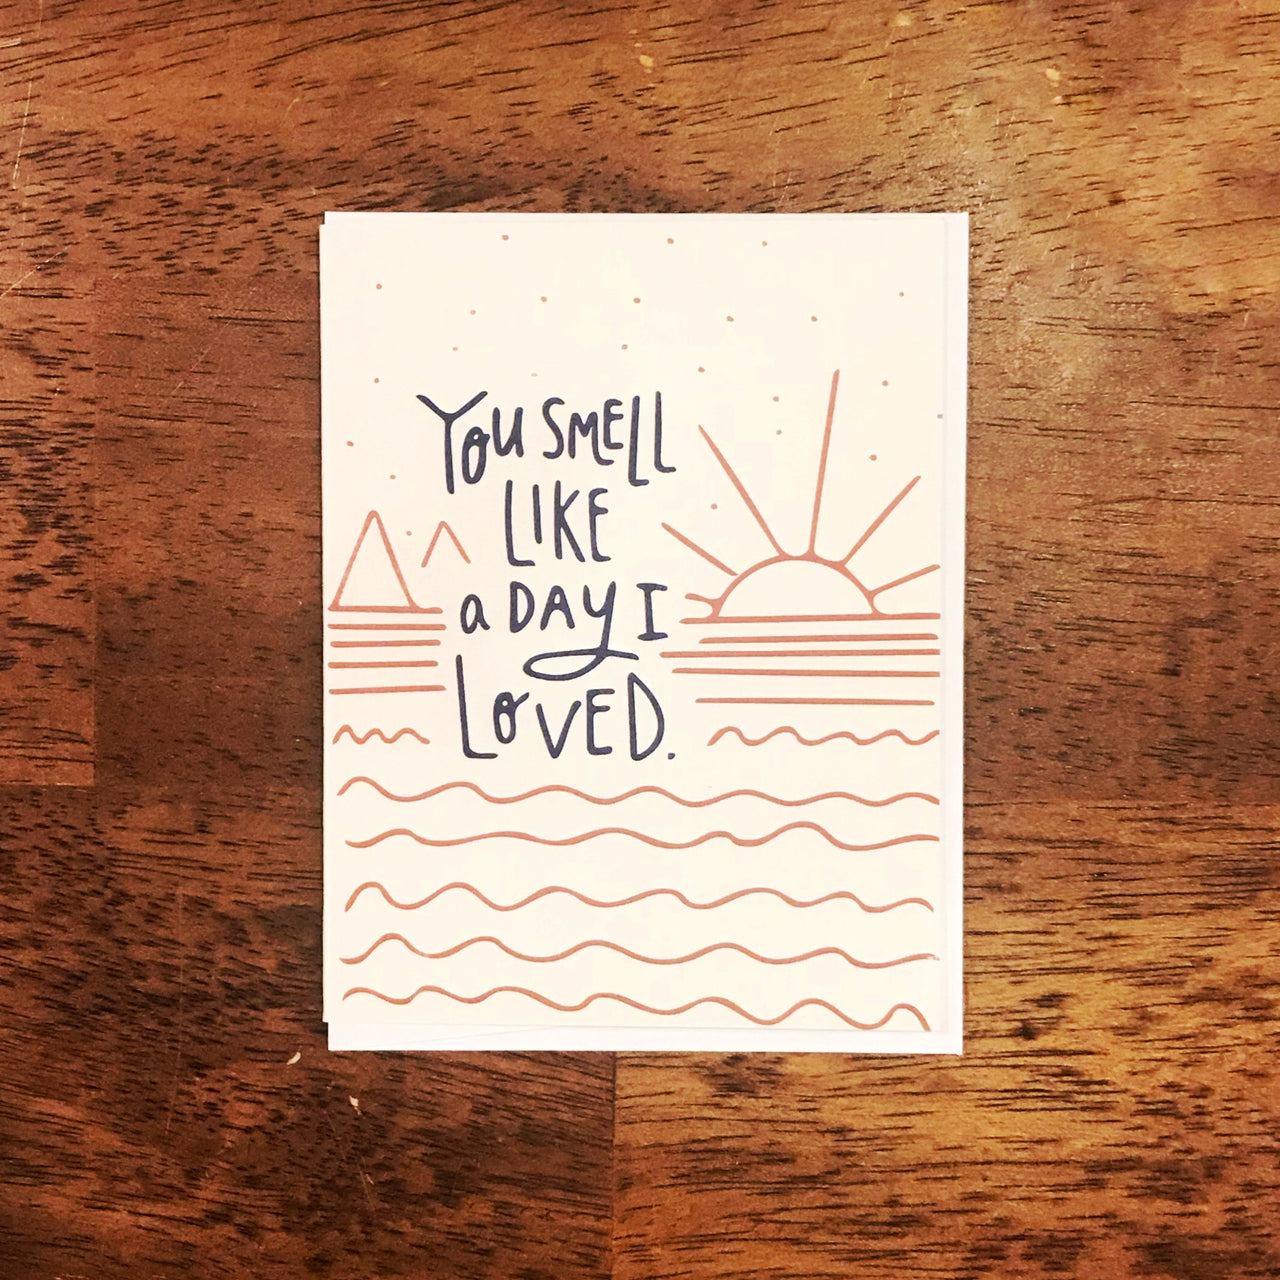 YOU SMELL
LIKE
a DAY I
LOVED.